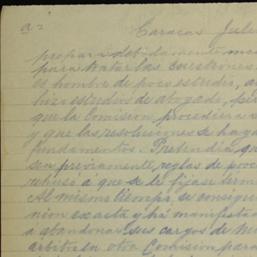 a=
Caracas Julio
preparar debidamente
para tratar las cuestiones
es hombre de poco estudio,
hizo estudios de abogado,
que la Comision procediera
y que las resoluciones se haya
fundamentos. Pretendia que
sen previamente, reglas de proce
rehusó a que se le fijase térm
Al mismo tiempo, se consegu
nion exacta y há manifestad
a abandonar sus cargos de
arbitro en otra Comision para